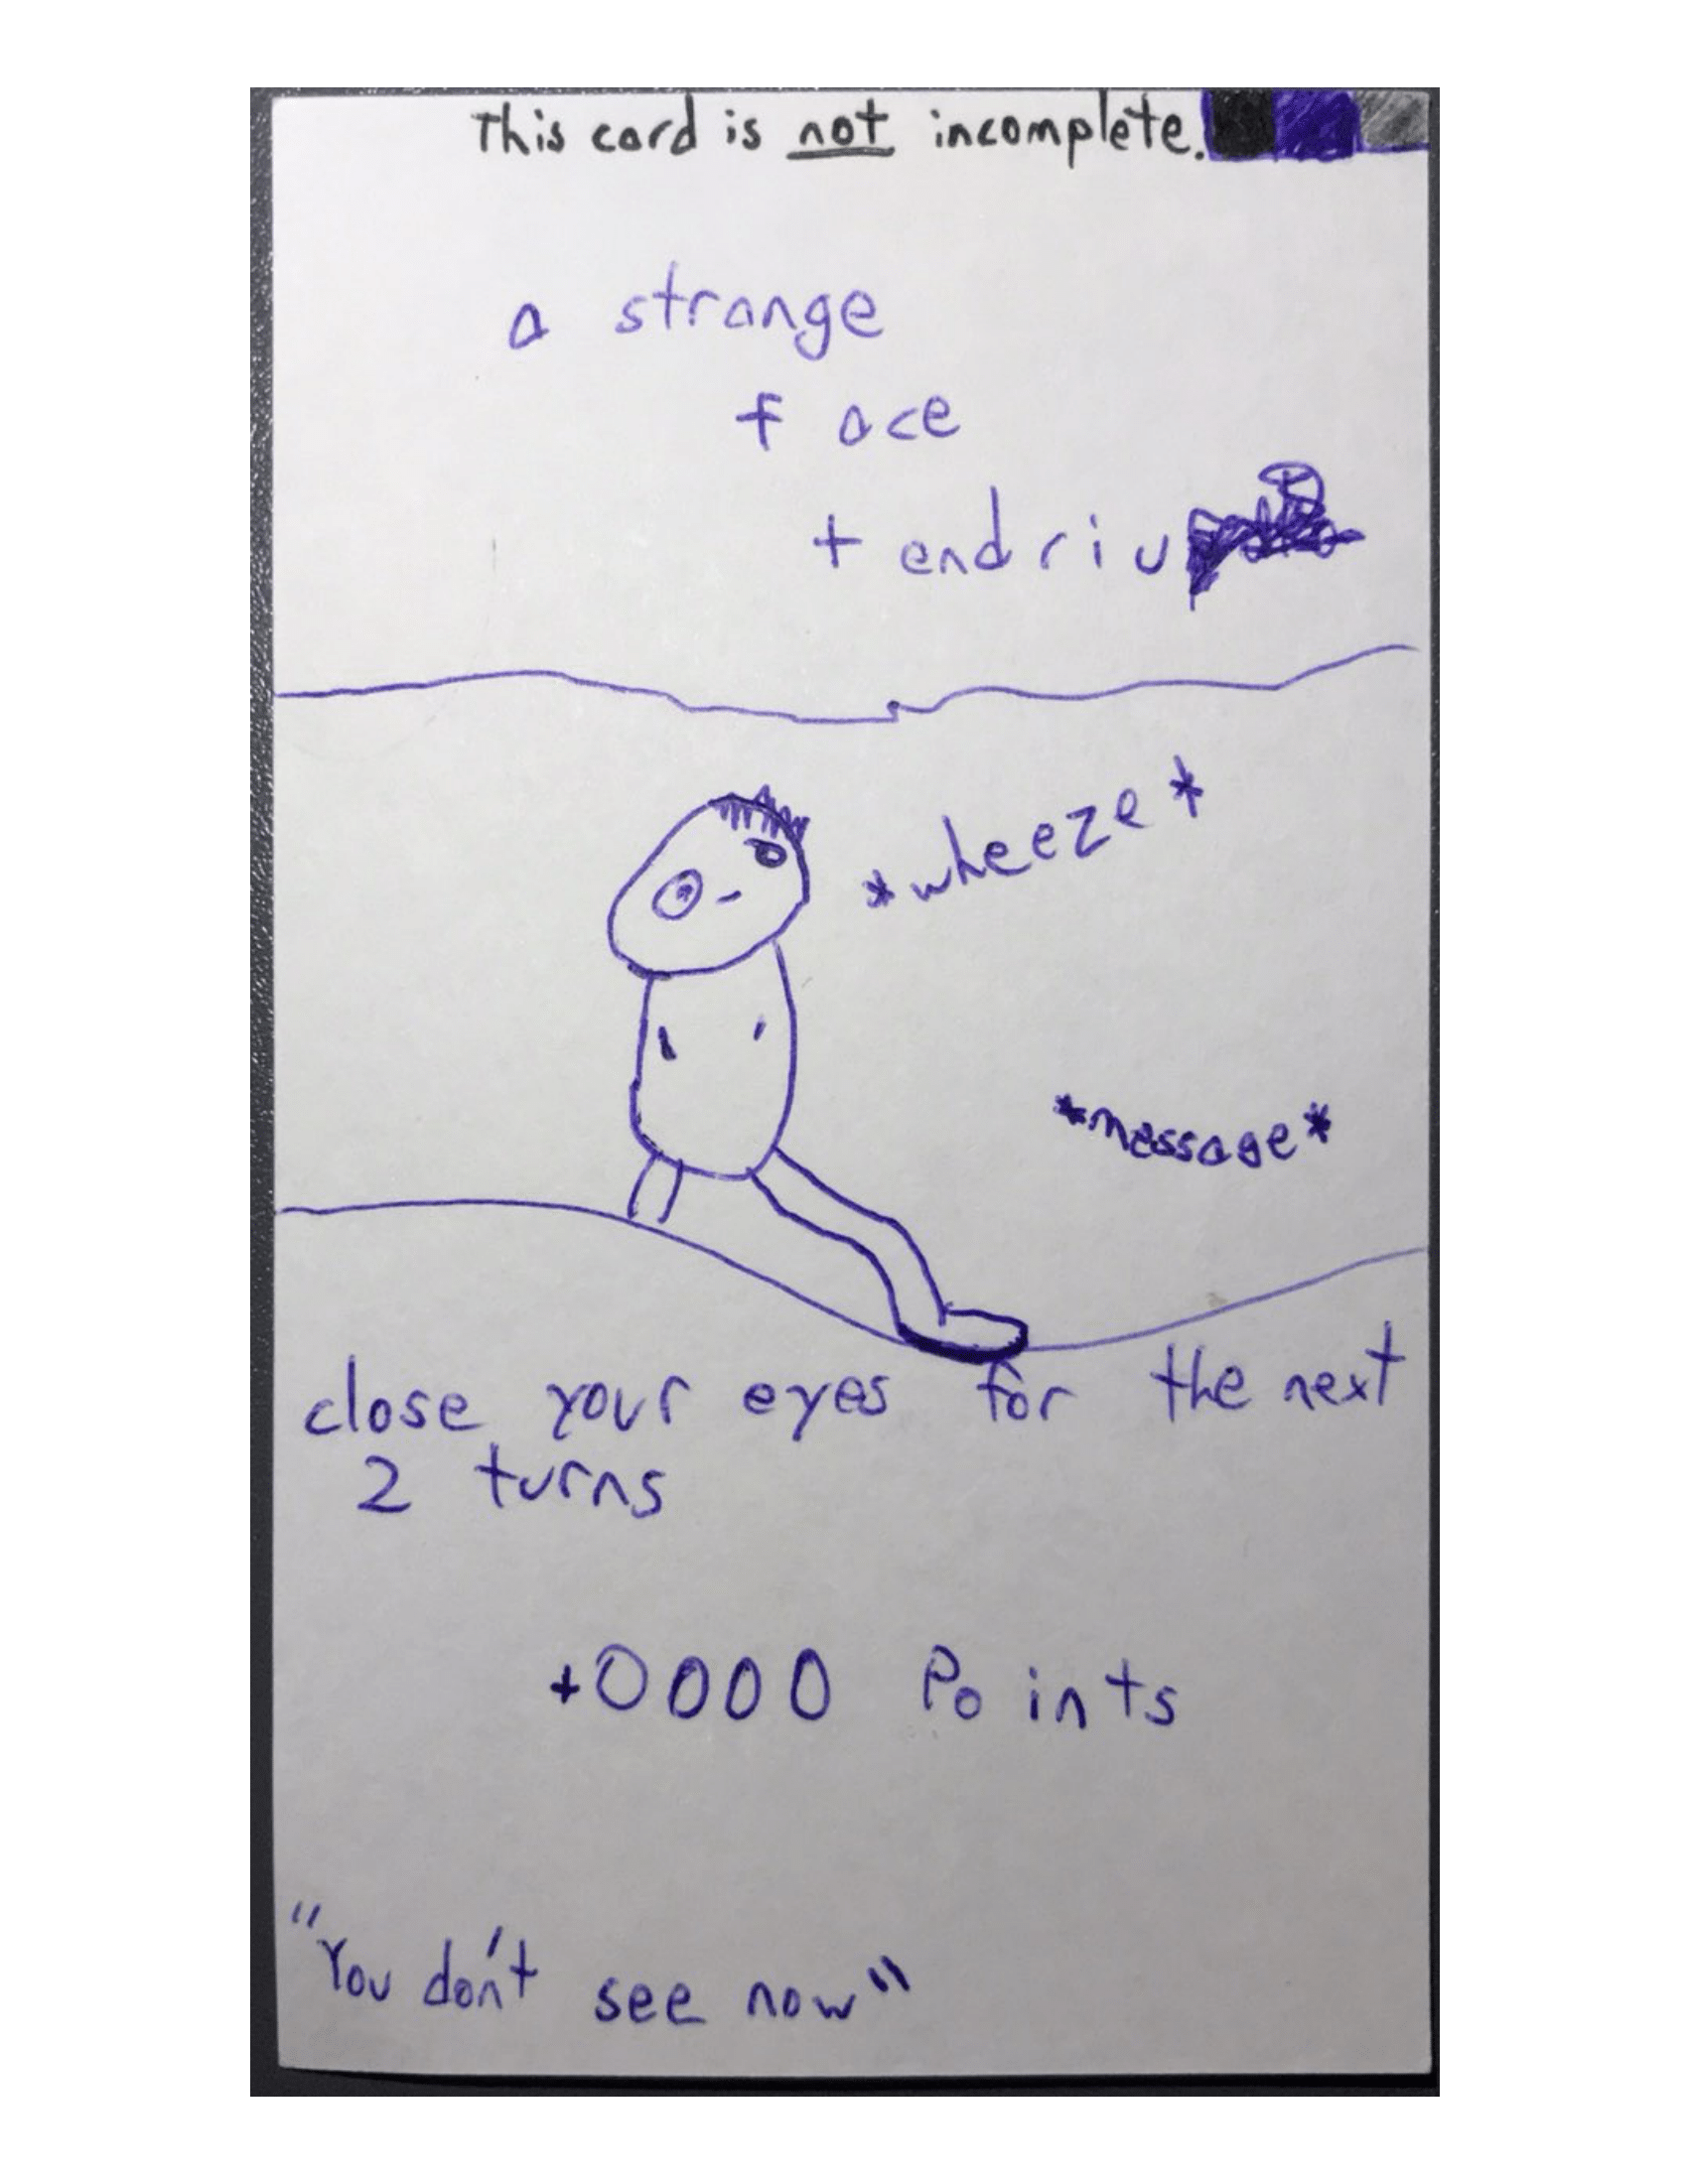 This card is not incomplete.
a strange
f ace
t endriu
*wheeze*
*message*
close your eyes for the next
2 turns
+0000 Points
"You don't see now"